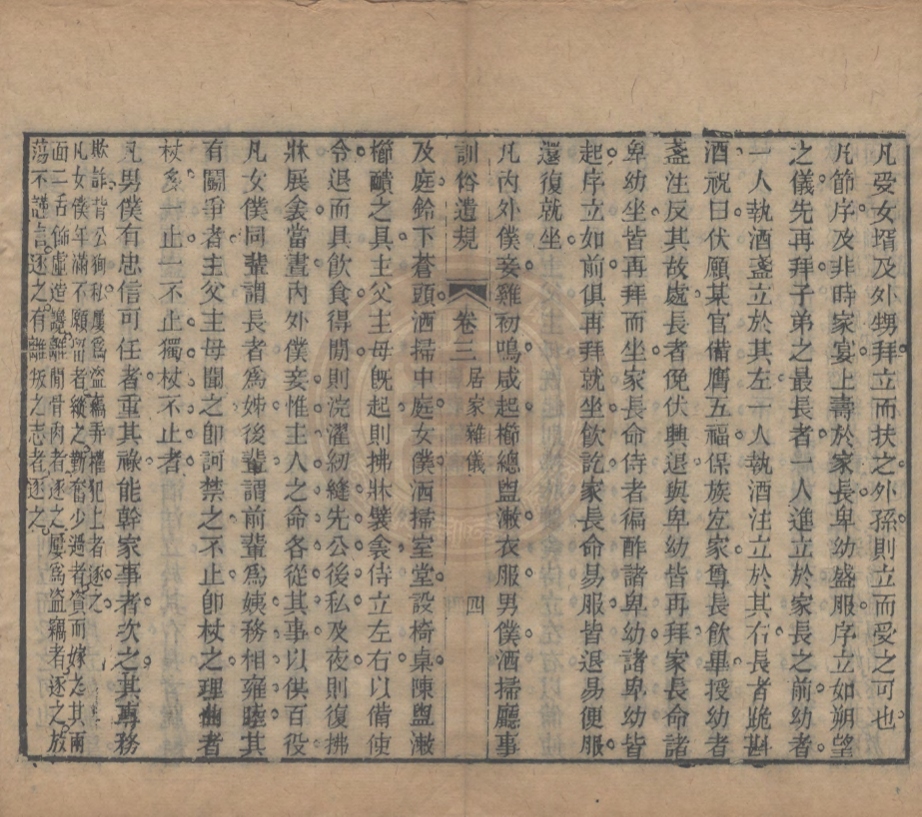 凡受女壻及外甥拜立而扶之外孫則立而受之可也
凡節序及非時家宴上壽於家長卑幼盛服序立如朔望
之儀先再拜子弟之最長者一人進立於家長之前幼者
一人執酒盞立於其左一人執酒注立於其右長者跪斟
酒祝曰伏願某官備膺五福保族宜家尊長飲畢授幼者
盞注反其故處長者俛伏興退與卑幼皆再拜家長命諸
卑幼坐皆再拜而坐家長命侍者徧酢諸卑幼諸卑幼皆
起序立如前俱再拜就坐飲訖家長命易服皆退易便服
還復就坐
凡內外僕妾雞初鳴咸起櫛總盥漱衣服男僕洒掃廳事
訓俗遺規 卷三 居家雜儀 四
及庭鈴下蒼頭洒掃中庭女僕洒掃室堂設椅桌陳盥漱
櫛靧之具主父主母旣起則拂牀襞衾侍立左右以備使
令退而具飲食得閒則浣濯紉縫先公後私及夜則復拂
牀展衾當晝內外僕妾惟主人之命各從其事以供百役
凡女僕同輩謂長者爲姊後輩謂前輩爲姨務相雍睦其
有鬭爭者主父主母聞之卽訶禁之不止卽杖之理曲者
杖多一止一不止獨杖不止者
凡男僕有忠信可任者重其祿能幹家事者次之其專務
欺詐背公徇私屢爲盜竊弄權犯上者逐之
凡女僕年滿不願留者縱之勤奮少過者資而嫁之其兩
面二舌飾虛造讒離間骨肉者逐之屢爲盜竊者逐之放
蕩不謹者逐之有離叛之志者逐之